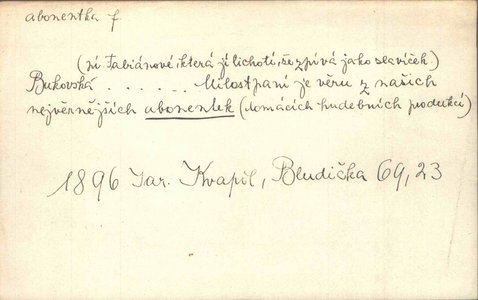 abonentka f.
(ní Fabiánové, která jí lichotí, že zpívá jako slavíček.)
Bukovská . . . . . . Milostpaní je věru z našich
nejvěrnějších abonentek (domácích hudebních produkcí)
1896 Jar. Kvapil, Bludička 69,23